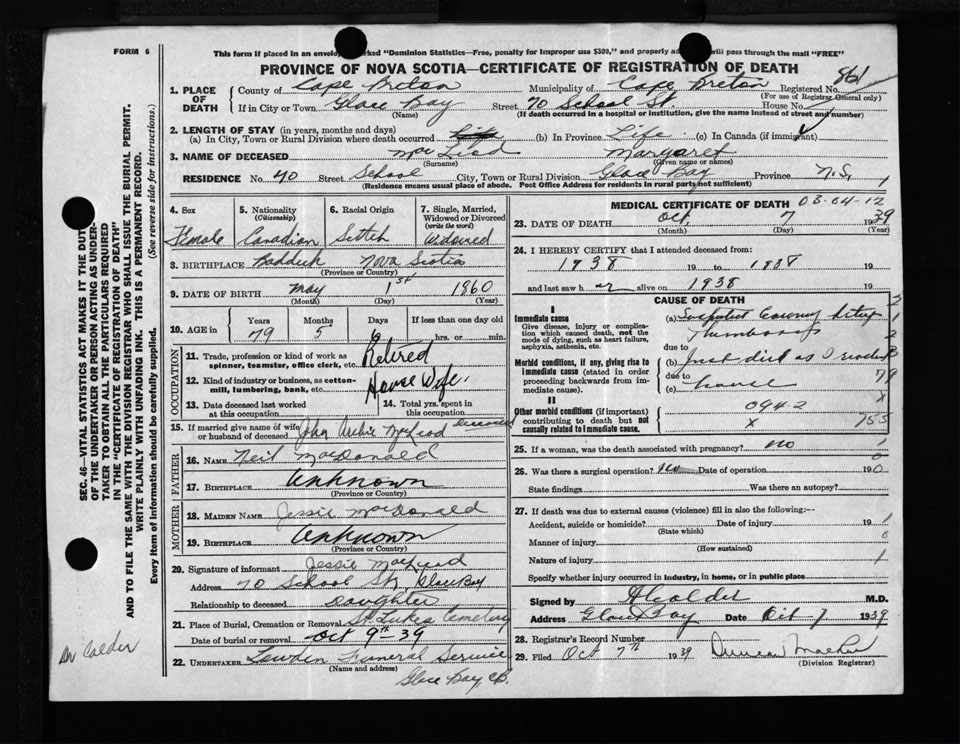 FORM 6
This form if placed in an envelo marked "Dominion Statistics—Free, penalty for improper use $300," and properly ad will pass through the mail "FREE"
PROVINCE OF NOVA SCOTIA—CERTIFICATE OF REGISTRATION OF DEATH
861
1. PLACE OF DEATH County of Cape Breton Municipality of Cape Breton Registered No.
(For use of Registrar General only)
If in City or Town Glace Bay Street 70 School St. House No.
(Name) (If death occurred in a hospital or institution, give the name instead of street and number)
2. LENGTH OF STAY (in years, months and days)
(a) In City, Town or Rural Division where death occurred Life (b) In Province Life (c) In Canada (if immigrant)
3. NAME OF DECEASED MacLeod Margaret
(Surname) (Given name or names)
RESIDENCE No. 70 Street School City, Town or Rural Division Glace Bay Province N.S. 1
(Residence means usual place of abode. Post Office Address for residents in rural parts not sufficient)
4. Sex 5. Nationality (Citizenship) 6. Racial Origin 7. Single, Married, Widowed or Divorced (write the word)
Female Canadian Scotch Widowed
8. BIRTHPLACE Baddeck Nova Scotia
(Province or Country)
9. DATE OF BIRTH May 1st 1860
(Month) (Day) (Year)
10. AGE in Years Months Days If less than one day old
79 5 6 hrs. or min.
OCCUPATION
11. Trade, profession or kind of work as spinner, teamster, office clerk, etc. Retired
12. Kind of industry or business, as cotton-mill, lumbering, bank, etc. House Wife.
13. Date deceased last worked at this occupation 14. Total yrs. spent in this occupation
15. If married give name of wife or husband of deceased John Archie MacLeod Deceased
FATHER
16. NAME Neil MacDonald
17. BIRTHPLACE Unknown
(Province or Country)
MOTHER
18. MAIDEN NAME Jessie MacDonald
19. BIRTHPLACE Unknown
(Province or Country)
20. Signature of informant Jessie MacLeod
Address 70 School St, Glace Bay
Relationship to deceased Daughter
21. Place of Burial, Cremation or Removal St Lukes Cemetery
Date of burial or removal Oct 9th 39
22. UNDERTAKER Lowden Funeral Service
(Name and address)
Glace Bay, C.B.
MEDICAL CERTIFICATE OF DEATH 03-04-12
23. DATE OF DEATH Oct. 7 1939
(Month) (Day) (Year)
24. I HEREBY CERTIFY that I attended deceased from:
1938 19 to 1938 19
and last saw her alive on 1938 19
CAUSE OF DEATH
I
Immediate cause
Give disease, injury or complication which caused death, not the mode of dying, such as heart failure, asphyxia, asthenia, etc.
(a) Suspected Coronary Artery
Thrombosis
due to
Morbid conditions, if any, giving rise to immediate cause (stated in order proceeding backwards from immediate cause).
(b) just died as I reached
due to
(c) house
79
x
II
Other morbid conditions (if important) contributing to death but not causally related to immediate cause.
094-2
x 755
25. If a woman, was the death associated with pregnancy? no
26. Was there a surgical operation? no Date of operation 19
State findings Was there an autopsy?
27. If death was due to external causes (violence) fill in also the following:—
Accident, suicide or homicide? Date of injury 19
(State which)
Manner of injury
(How sustained)
Nature of injury
Specify whether injury occurred in industry, in home, or in public place
Signed by Calder M.D.
Address Glace Bay Date Oct 7 1939
28. Registrar's Record Number
29. Filed Oct 7th 1939 Duncan
(Division Registrar)
SEC. 46—VITAL STATISTICS ACT MAKES IT THE DUT
OF THE UNDERTAKER OR PERSON ACTING AS UNDER-
TAKER TO OBTAIN ALL THE PARTICULARS REQUIRED
IN THE "CERTIFICATE OF REGISTRATION OF DEATH"
AND TO FILE THE SAME WITH THE DIVISION REGISTRAR WHO SHALL ISSUE THE BURIAL PERMIT.
WRITE PLAINLY WITH UNFADING INK. THIS IS A PERMANENT RECORD.
Every item of information should be carefully supplied. (See reverse side for instructions.)
Dr Calder